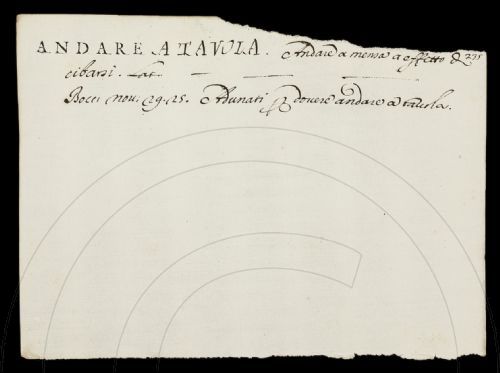 ANDARE A TAVOLA. Andare a mensa a effetto di
cibarsi. Lat. — — —
Bocc. nov. 29. 25. Adunati p dovere andare a tavola.